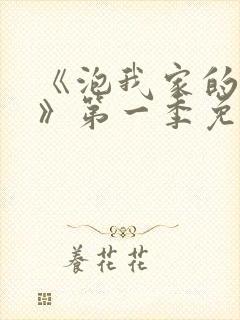 《泡我家的
》第一季免
養花花